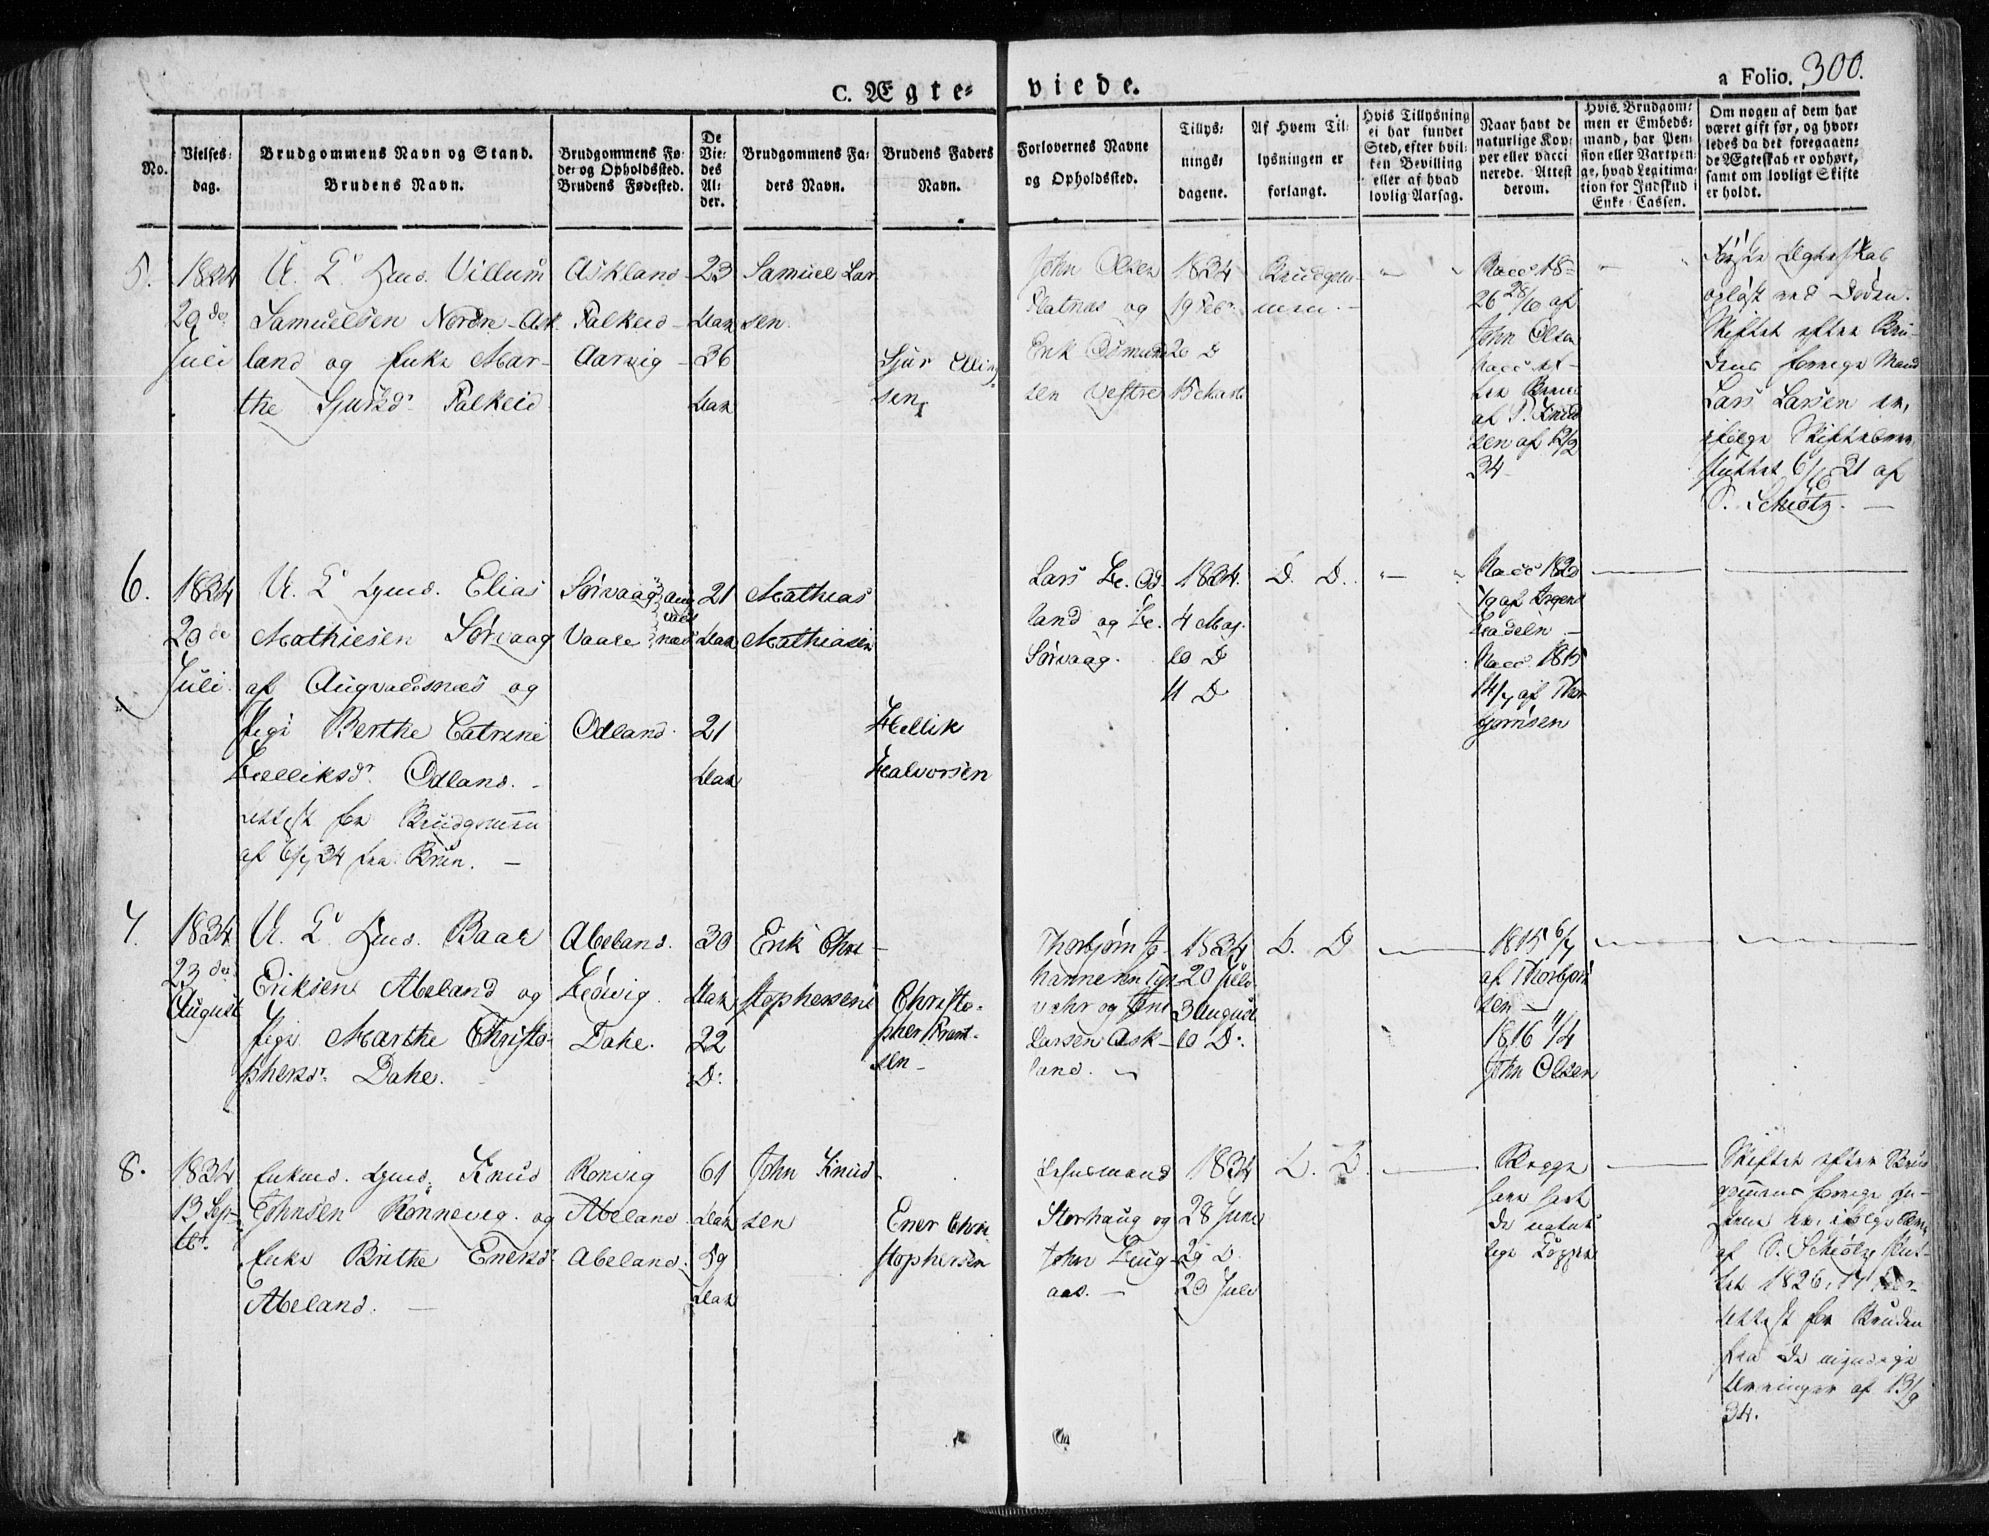 C. Ægte-
viede.
a Folio. 300.
No.
Vielses-
dag.
Brudgommens Navn og Stand.
Brudens Navn.
Brudgommens Fø-
de- og Opholdssted.
Brudens Fødested.
De
Vie-
des
Al-
der.
Brudgommens Fa-
ders Navn.
Brudens Faders
Navn.
Forlovernes Navne
og Opholdssted.
Tillys-
nings-
dagene.
Af Hvem Til-
lysningen er
forlangt.
Hvis Tillysning
ei har fundet
Sted, efter hvil-
ken Bevilling
eller af hvad
lovlig Aarsag.
Naar havt de
naturlige Kop-
per eller vacci-
nerede. Attest
derom.
Hvis Brudgom-
men er Embeds-
mand, har Pen-
sion eller Vartpen-
ge, hvad Legitima-
tion for Indskud i
Enke-Cassen.
Om nogen af dem har
været gift før, og hvor-
ledes da det foregaaen-
de Ægteskab er ophørt,
samt om lovligt Skifte
er holdt.
5.
1834
20 de
Juli
U. C. Villum
Samuelsen Nordre Ask
land og Enke Mar-
the Sjursdr Falkeid
Askland
Falkeid
Aarvig
23
Aar
36
Aar
Samuel Lar
sen.
Sjur Elling
sen
John Olsen
Flatnæs og
Erik Osmund
sen Vestre
1834
19 Febr
20 D
Brudgom
men.
Vacc 18-
26 28/10 af
John Olsen
Vacc
af P. Knud
sen af 12/2
34
Første Ægteskab
opløst ved Døden.
Skiftet efter Bru-
dens forrige Mand
Lars Larsen er,
ifølge
sluttet 6/10 31 af
S. Schiøtz.
6.
1834
20 de
Juli
U. C. Gmd. Elias
Mathiesen Sørvaag
af Augvaldsnæs og
Pige Berthe Catrine
Helliksdr. Odland.
Attest for Brudgommen
af 6/7 34 fra Brun.
Sørvaag
Vaare
Odland.
21
Aar
21
Aar
Mathias
Mathiasen
Hellik
Halvorsen
Lars H. Od
land og H.
Sørvaag.
1834.
4 Maj
10 D
11 D
D. D.
Vacc 1820
Vacc 1815
14/7 af Thor
bjørnsen
7.
1834
23 de
August
U. C. Gmd. Baar
Eriksen Abeland og
Pige Marthe Christo-
phersdr. Dahe.
Abeland.
Hedvig.
Dahe.
30
Aar
22
D.
Erik Chri
stophersen
Christo-
pher
sen
Thorbjørn Jo-
hannesen
land.
1834
20 Juli
3 August
10 D.
D. D
1815 6/7
af Thorbjørn
sen
1816 4/4
John Olsen
8.
1834
13 Sep-
tb.
Enkmd. Gmd. Knud
Johnsen Rønnevig og
Enke Brithe Enersdr
Abeland.
Rønvig
Abeland
Abeland.
61
Aar
59
Aar
John Knud
sen
Ener Chri
stophersen
Lehnsmand
Storhaug og
John Haug
aas.
1834
28 Juni
29 D.
20 Juli
D. D.
Begge
have havt
de natur
lige Kopper
Skiftet efter Brud
gommens forrige
af S. Schiøtz slut-
tet 1826,
Attest for Bruden
fra de myndige
Arvinger af 13/9
34.